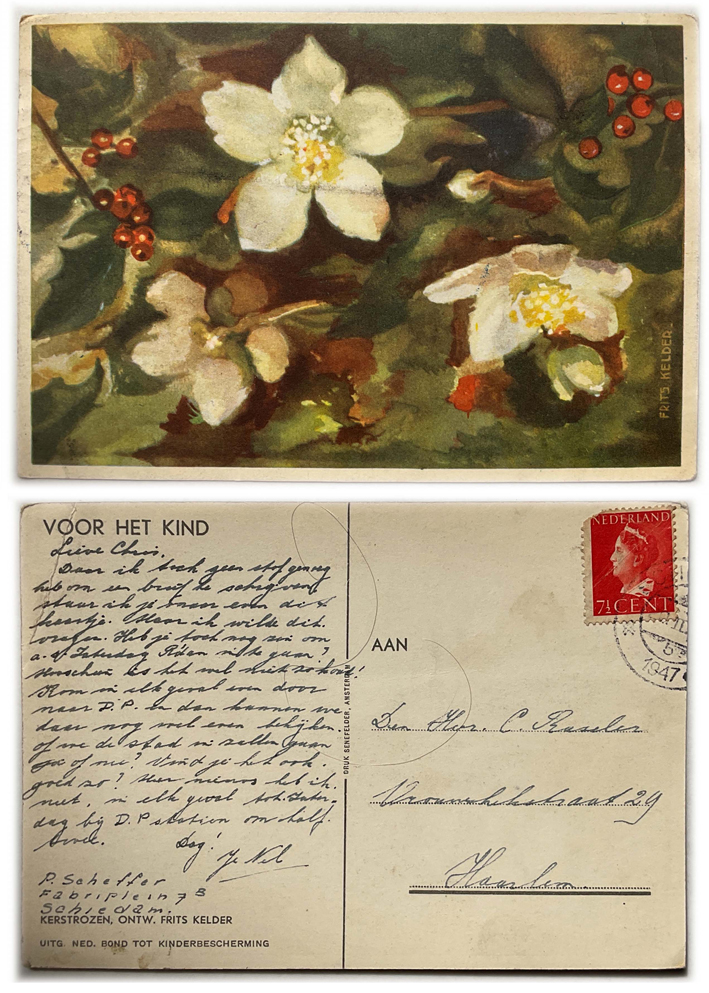 FRITS KELDER
VOOR HET KIND
Lieve Chris,
Daar ik toch geen stof genoeg
heb om een brief te schrijven
stuur ik je maar even dit
kaartje. Maar ik wilde dit
vragen. Heb je toch nog zin om
a.s. Zaterdag te gaan?
is het wel niet zo koud!
Kom in elk geval even door
naar D.P. en dan kunnen we
daar nog wel even bekijken
of we de stad in zullen gaan
of nee? Vind je het ook
goed zo? Meer nieuws heb ik
niet, in elk geval tot Zater-
dag bij D.P station om half
twee. Dag!
Je Nel
P. Scheffer
Fabriplein 7 B
Schiedam.
KERSTROZEN, ONTW. FRITS KELDER
UITG. NED. BOND TOT KINDERBESCHERMING
DRUK SENEFELDER, AMSTERDAM
NEDERLAND
7½ CENT
1947
AAN
Den Hr. C.
29
Haarlem.